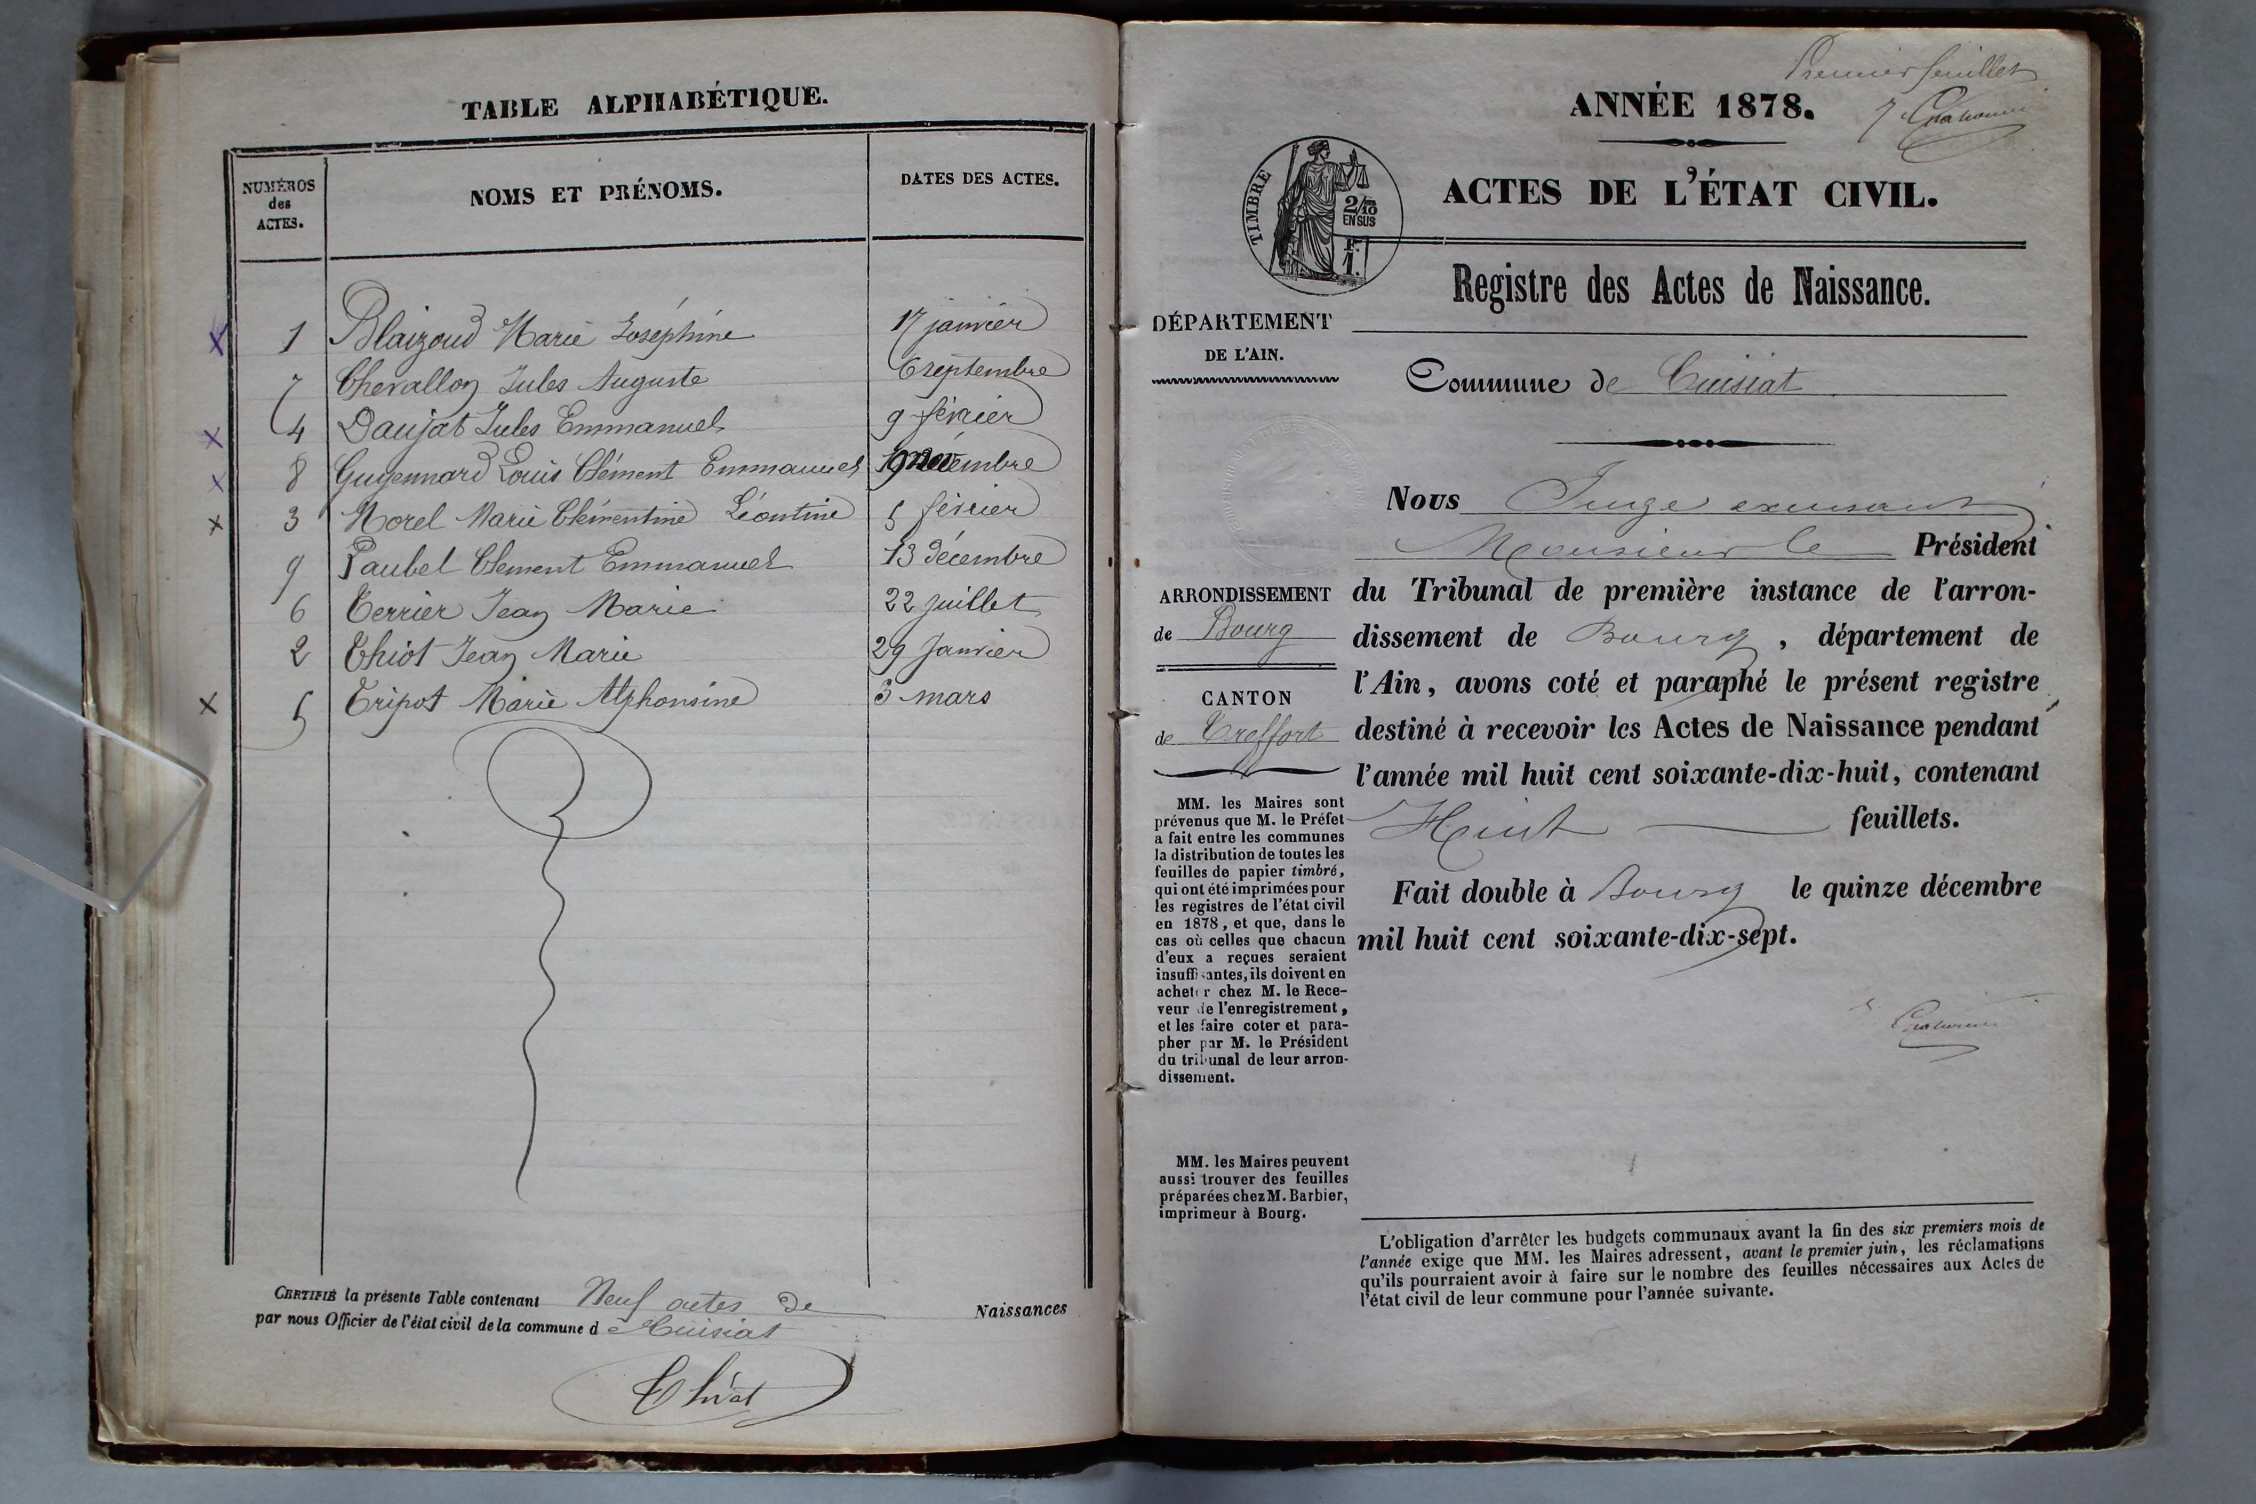 TABLE ALPHABÉTIQUE.
NUMÉROS
des
ACTES.
NOMS ET PRÉNOMS.
DATES DES ACTES.
1 Blaizoud Marie Joséphine 17 janvier
7 Chevallon Jules Auguste 6 septembre
4 Daujat Jules Emmanuel 9 février
8 Guyennard Louis Clément Emmanuel
3 Morel Marie Clémentine Léontine 5 février
9 Paubel Clément Emmanuel 13 décembre
6 Terrier Jean Marie 22 juillet
2 Thiot Jean Marie 29 Janvier
5 Tripot Marie Alphonsine 3 mars
CERTIFIÉ la présente Table contenant Neuf actes de Naissances
par nous Officier de l'état civil de la commune d Cuisiat
Thiot
Premier feuillet
ANNÉE 1878.
ACTES DE L'ÉTAT CIVIL.
TIMBRE
2/10
EN SUS
1F.
Registre des Actes de Naissance.
DÉPARTEMENT
DE L'AIN.
Commune de Cuisiat
Nous Juge
Monsieur le Président
du Tribunal de première instance de l'arron-
dissement de Bourg, département de
l'Ain, avons coté et paraphé le présent registre
destiné à recevoir les Actes de Naissance pendant
l'année mil huit cent soixante-dix-huit, contenant
Huit feuillets.
Fait double à Bourg le quinze décembre
mil huit cent soixante-dix-sept.
ARRONDISSEMENT
de Bourg
CANTON
de Treffort
MM. les Maires sont
prévenus que M. le Préfet
a fait entre les communes
la distribution de toutes les
feuilles de papier timbré,
qui ont été imprimées pour
les registres de l'état civil
en 1878, et que, dans le
cas où celles que chacun
d'eux a reçues seraient
insuffisantes, ils doivent en
acheter chez M. le Rece-
veur de l'enregistrement,
et les faire coter et para-
pher par M. le Président
du tribunal de leur arron-
dissement.
MM. les Maires peuvent
aussi trouver des feuilles
préparées chez M. Barbier,
imprimeur à Bourg.
L'obligation d'arrêter les budgets communaux avant la fin des six premiers mois de
l'année exige que MM. les Maires adressent, avant le premier juin, les réclamations
qu'ils pourraient avoir à faire sur le nombre des feuilles nécessaires aux Actes de
l'état civil de leur commune pour l'année suivante.